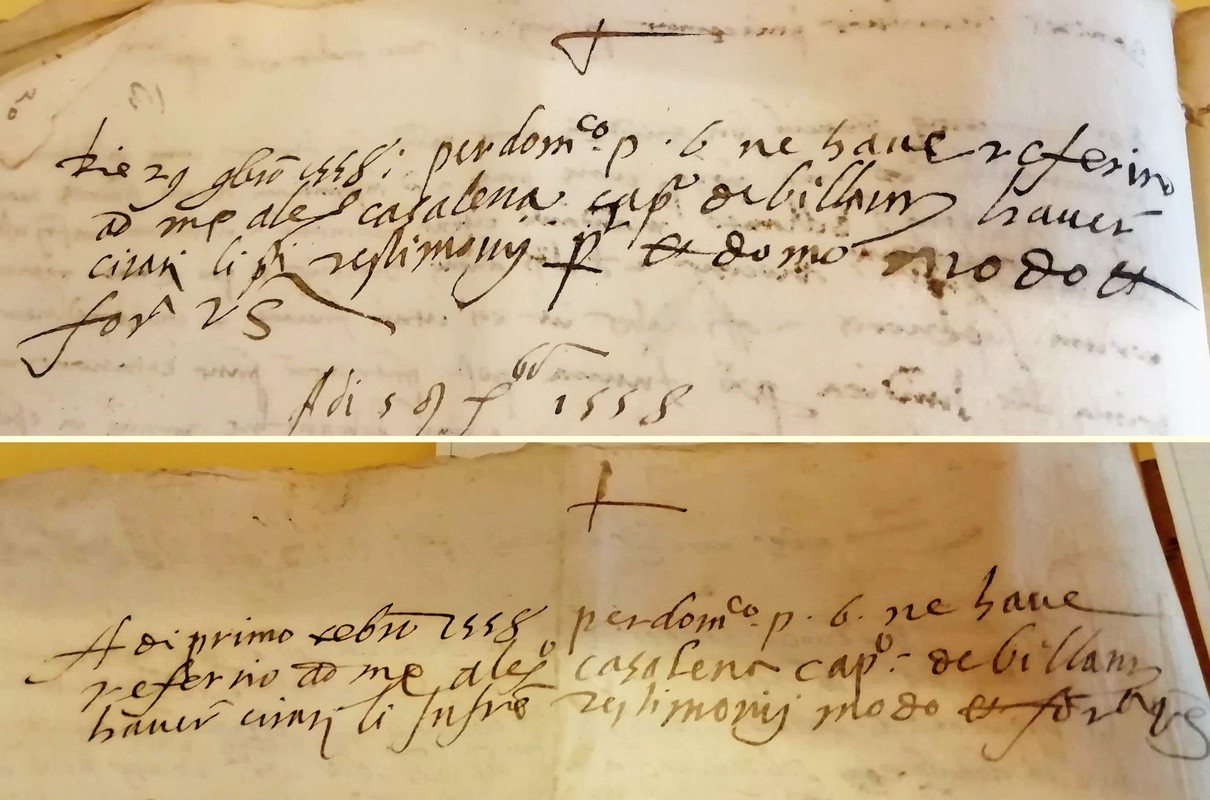 Die 29 9bro 1558: perdom^co. p. b. ne haue referito
ad me ales^o casalena cap^o de billanz hauer
citati li testimonij et domo modo et
for
Adi 1558
A di primo xebro 1558 perdom^co. p. b. ne haue
referito ad me ales^o casalena cap^o: de billanz
hauer citati li testimonij modo et for